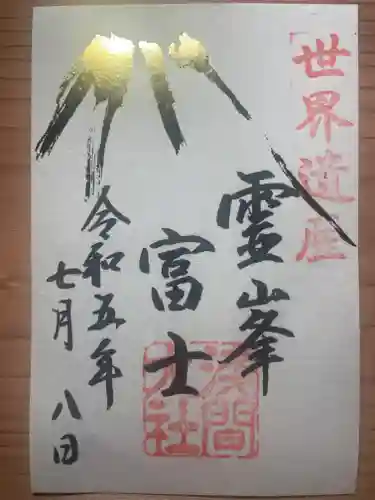 世界遺産
霊峯
富士
浅間
大社
令和五年
七月 八日